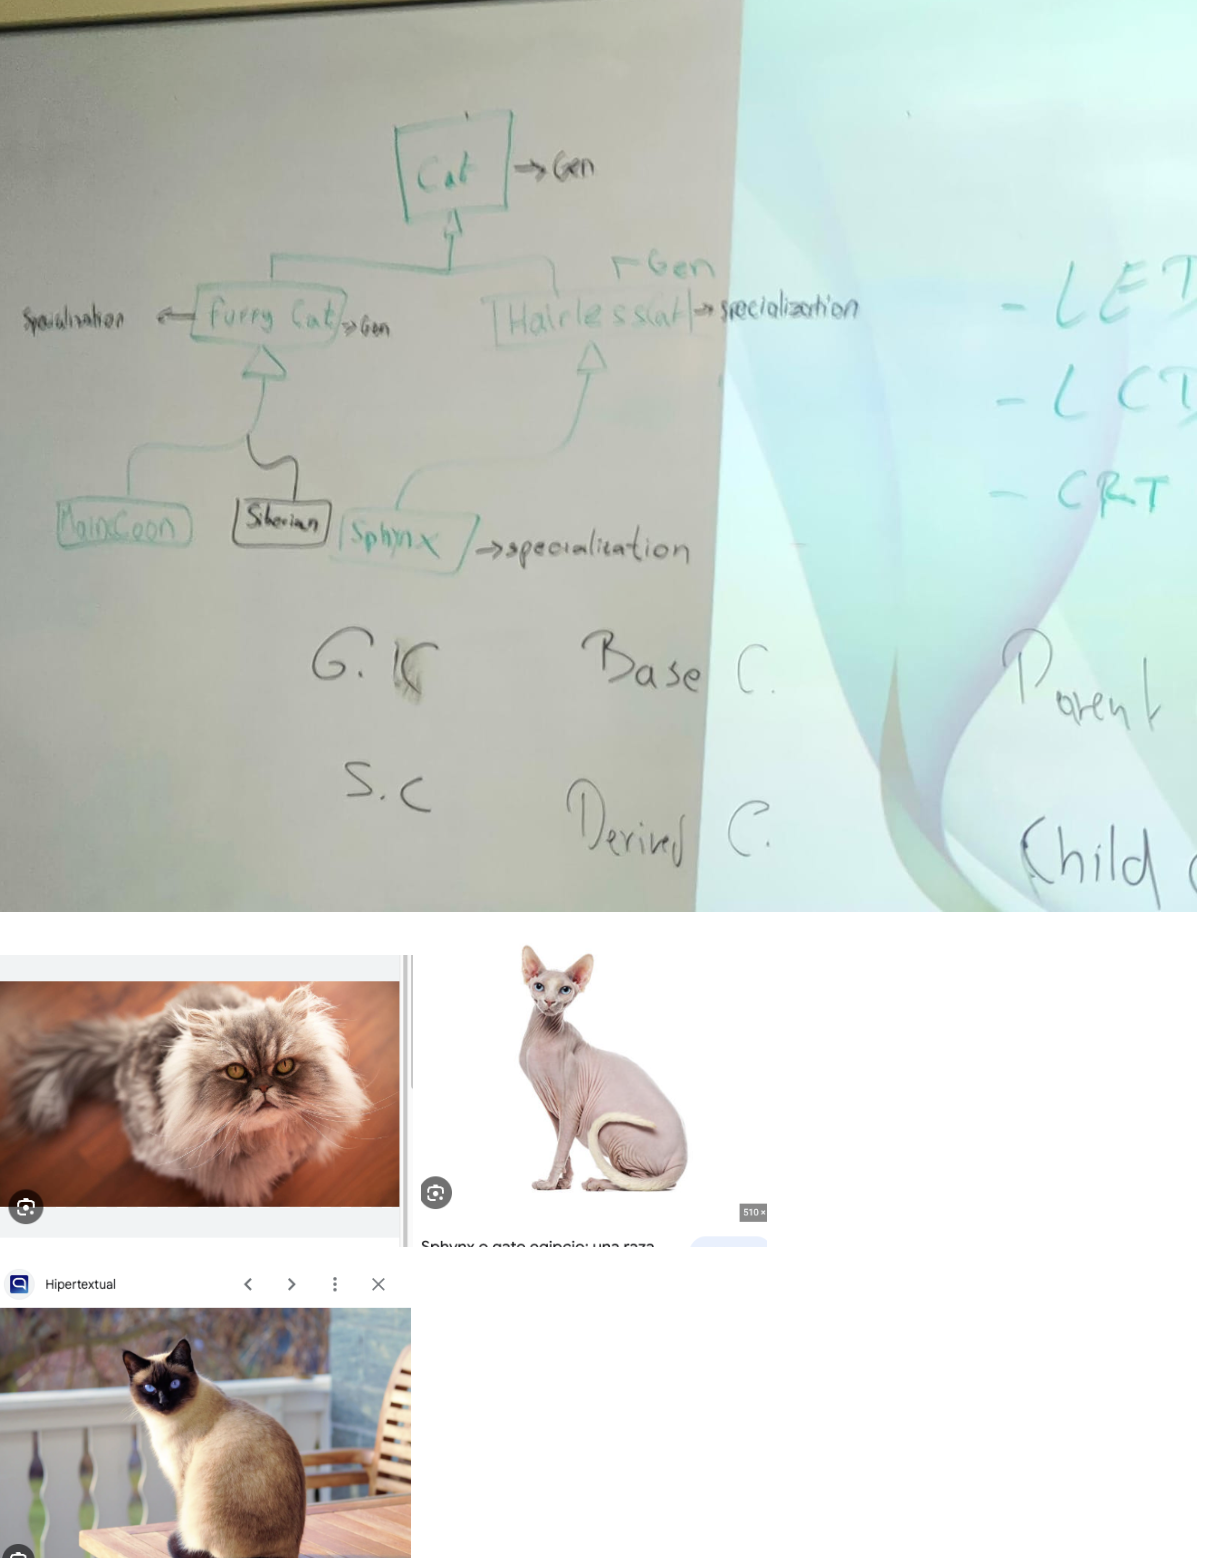 Cat → Gen
Gen
Specialization ← Furry Cat → Gen
Hairlesscat → specialization
- LED
- LCD
- CRT
MainCoon
Siberian
Sphynx → specialization
G. Base C. Parent
S.C Derived C. Child
510 ×
Sphynx o gato egipcio: una raza
Hipertextual